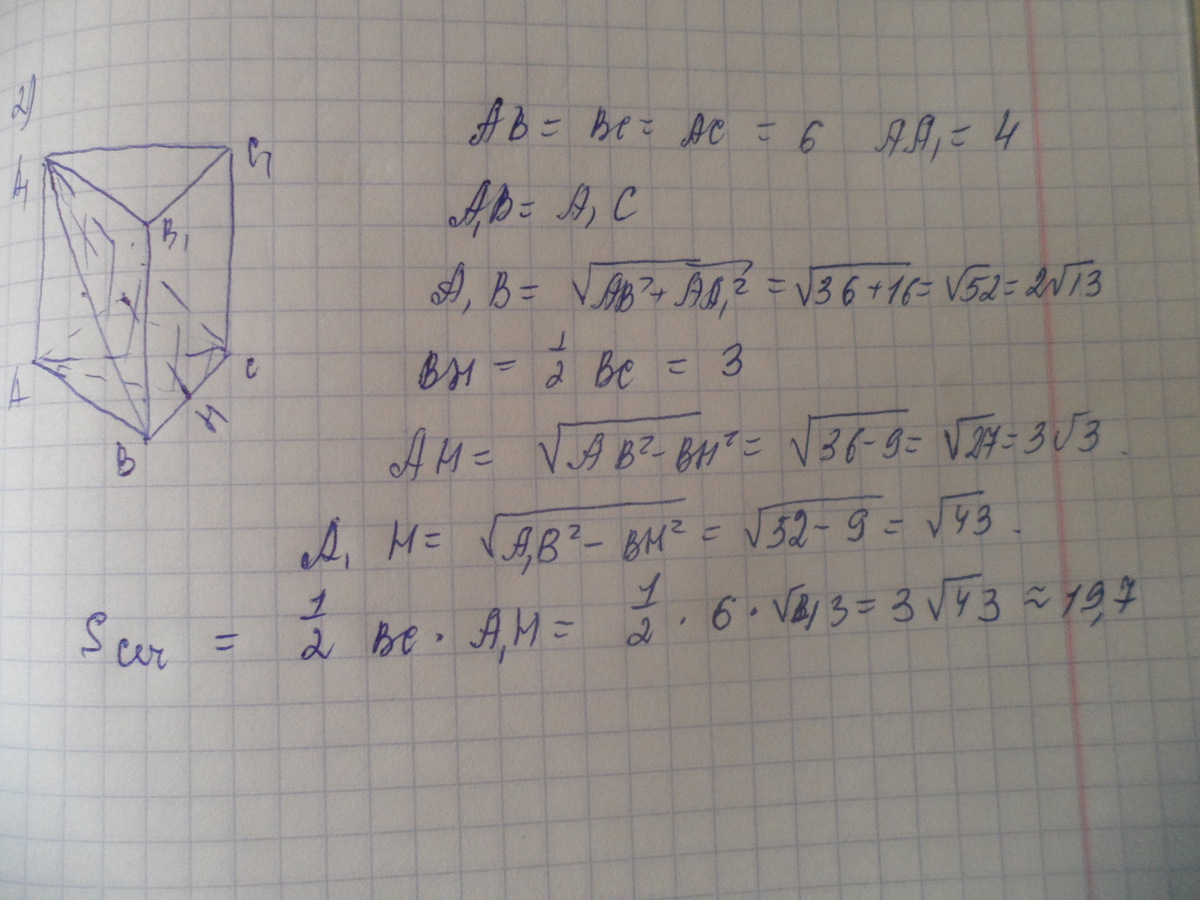 2)
A₁
C₁
B₁
A
C
B
H
AB = BC = AC = 6 AA₁ = 4
A₁B = A₁C
A₁B = √AB²+AA₁² = √36+16 = √52 = 2√13
BH = 1/2 BC = 3
AH = √AB²-BH² = √36-9 = √27 = 3√3.
A₁H = √A₁B²-BH² = √52-9 = √43.
Sсеч = 1/2 BC · A₁H = 1/2 · 6 · √43 = 3√43 ≈ 19,7